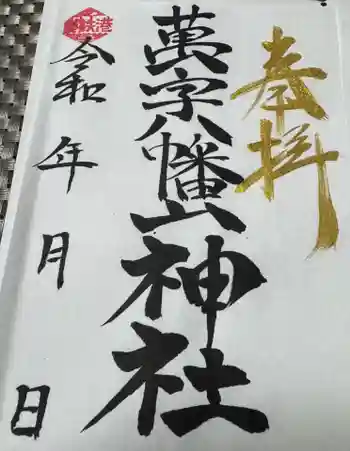 奉拝
萬字八幡山神社
令和 年 月 日